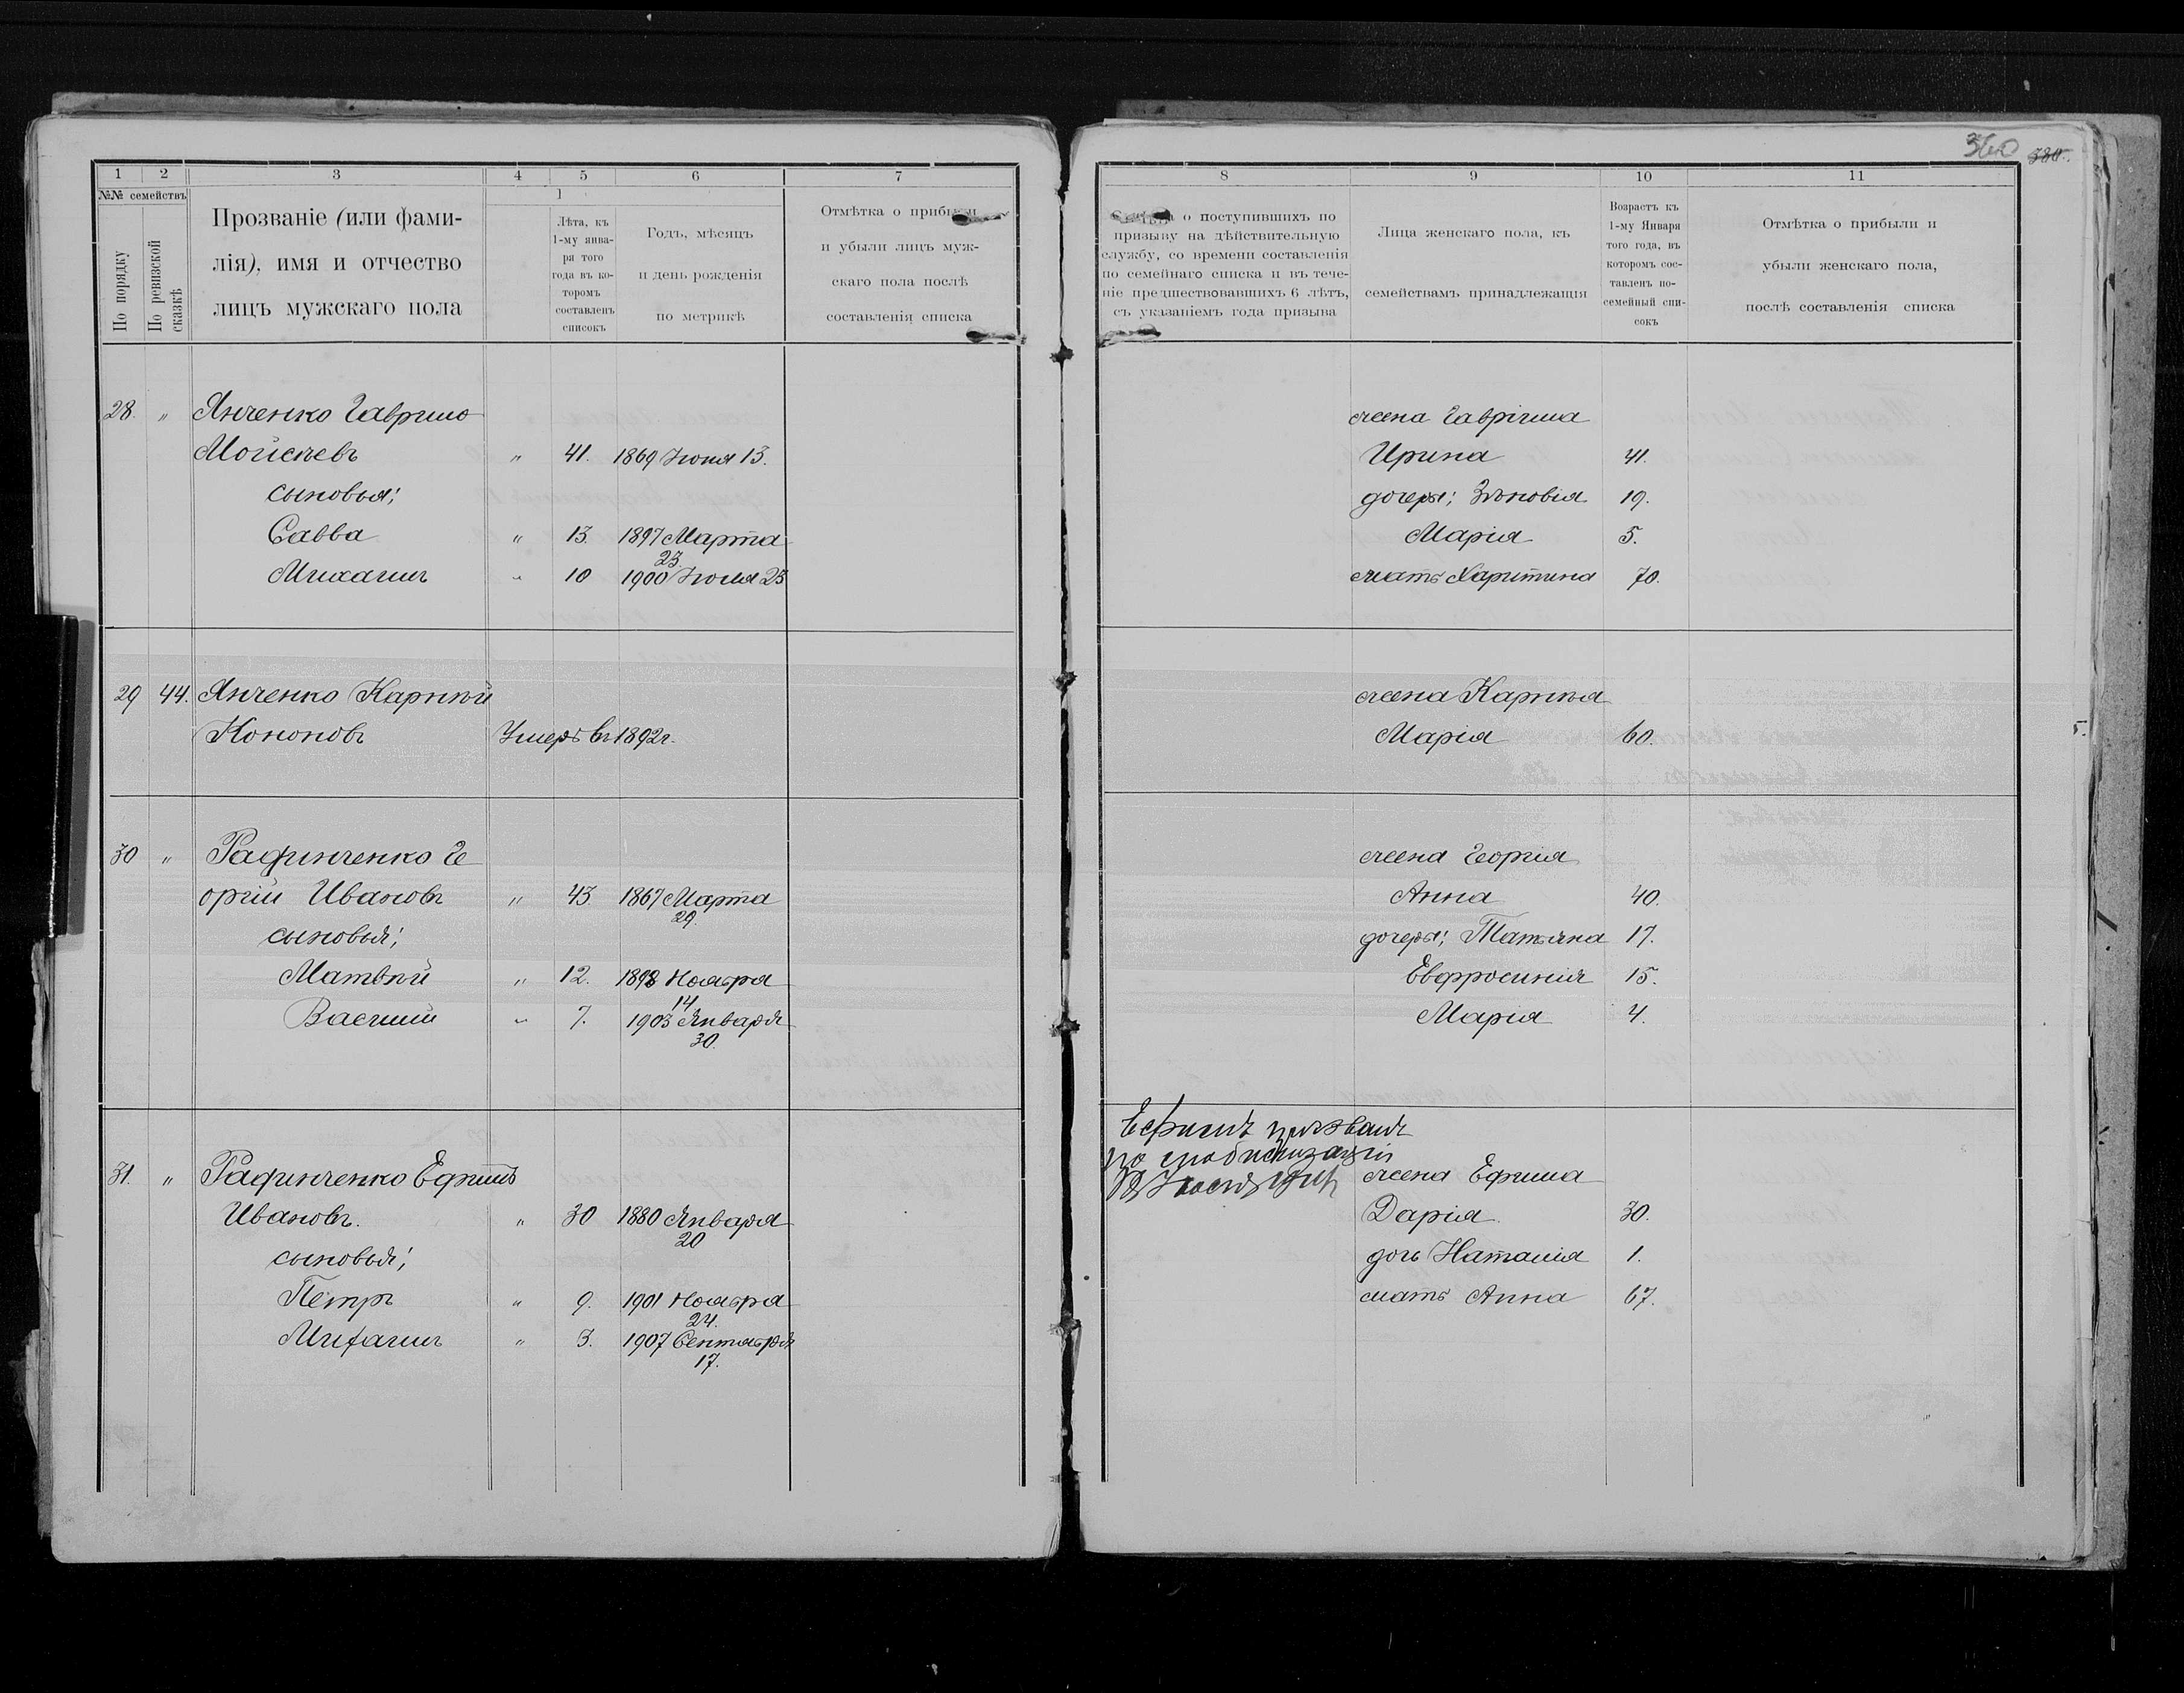 360 380.
1 2 3 4 5 6 7
№№ семействъ
По порядку
По ревизской сказкѣ
Прозваніе (или фами-
лія), имя и отчество
лицъ мужскаго пола
Лѣта, къ
1-му янва-
ря того
года въ ко-
торомъ
составленъ
списокъ
Годъ, мѣсяцъ
и день рожденія
по метрикѣ
Отмѣтка о прибыли
и убыли лицъ муж-
скаго пола послѣ
составленія списка
28. " Янченко Гаврило
Мойсеевъ " 41. 1869 Іюня 13.
сыновья;
Савва " 13. 1897 Марта
23.
Михаилъ " 10 1900 Іюля 23
29 44. Янченко Карпѣй
Кононовъ Умеръ въ 1892 г.
30 " Радинченко Ге
оргій Ивановъ " 43. 1867 Марта
29.
сыновья;
Матвѣй " 12. 1898 Ноября
14
Василій " 7. 1903 Января
30.
31. " Радинченко Ефимъ
Ивановъ. " 30 1880 Января
20
сыновья;
Петръ " 9. 1901 Ноября
24.
Михаилъ " 3. 1907 Сентября
17.
8 9 10 11
о поступившихъ по
призыву на дѣйствительную
службу, со времени составленія
по семейнаго списка и въ тече-
ніе предшествовавшихъ 6 лѣтъ,
съ указаніемъ года призыва
Лица женскаго пола, къ
семействамъ принадлежащія
Возрастъ къ
1-му Января
того года, въ
которомъ сос-
тавленъ по-
семейный спи-
сокъ
Отмѣтка о прибыли и
убыли женскаго пола,
послѣ составленія списка
жена Гавріила
Ирина 41.
дочери; Зѣновія 19.
Марія 5.
мать Харитина 70.
жена Карпѣя
Марія 60.
жена Георгія
Анна 40.
дочери; Татьяна 17.
Евфросинія 15.
Марія 4.
Ефимъ призванъ
по мобилизаціи
18 Іюля 1914
жена Ефима
Дарія 30.
дочь Наталія 1.
мать Анна 67.